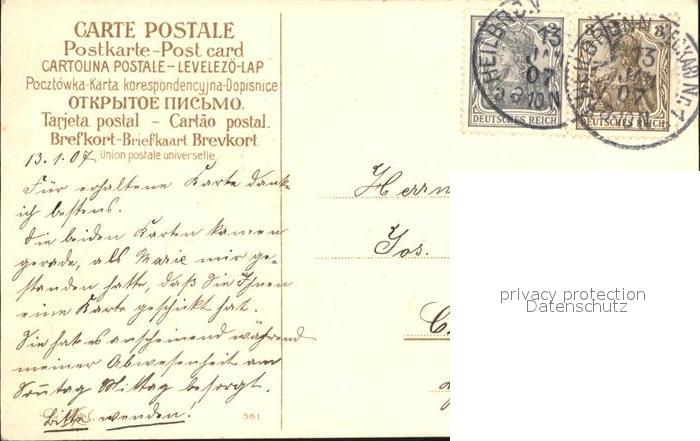 CARTE POSTALE
Postkarte-Post card
CARTOLINA POSTALE-LEVELEZŐ-LAP
Pocztówka-Karta korespondencyjna-Dopisnice
ОТКРЫТОЕ ПИСЬМО.
Tarjeta postal - Cartão postal.
Brefkort-Briefkaart Brevkort
Union postale universelle
13.1.07.
Für erhaltene Karte danke
ich bestens.
Die beiden Karten kamen
gerade, als Marie mir ge-
standen hatte, daß Sie Ihnen
eine Karte geschickt hat.
Sie hat es anscheinend während
meiner Abwesenheit am
Sonntag Mittag besorgt.
Bitte wenden!
561
HEILBRONN
13
07
8-10N
DEUTSCHES REICH
3
HEILBRONN NECKAR Nr. 1
13
07
8-10N
DEUTSCHES REICH
Herrn
Jos.
privacy protection
Datenschutz